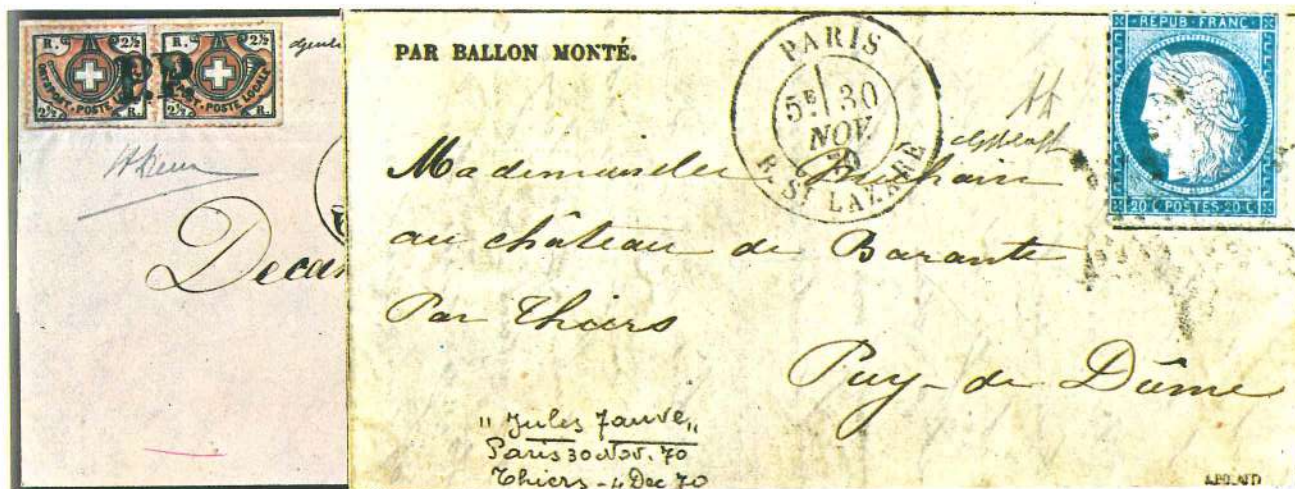 R. 2½ R. 2½
ORTSPOST · POSTE LOCALE
P.P.
2½ R. 2½ R.
Decan
PAR BALLON MONTÉ.
PARIS
5E 30
NOV.
70
R. ST LAZARE
REPUB · FRANC
20 C POSTES 20 C
Mademoiselle
au château de Barante
Par Thiers
Puy-de Dôme
"Jules Favre"
Paris 30 Nov. 70
Thiers - 4 Dec 70